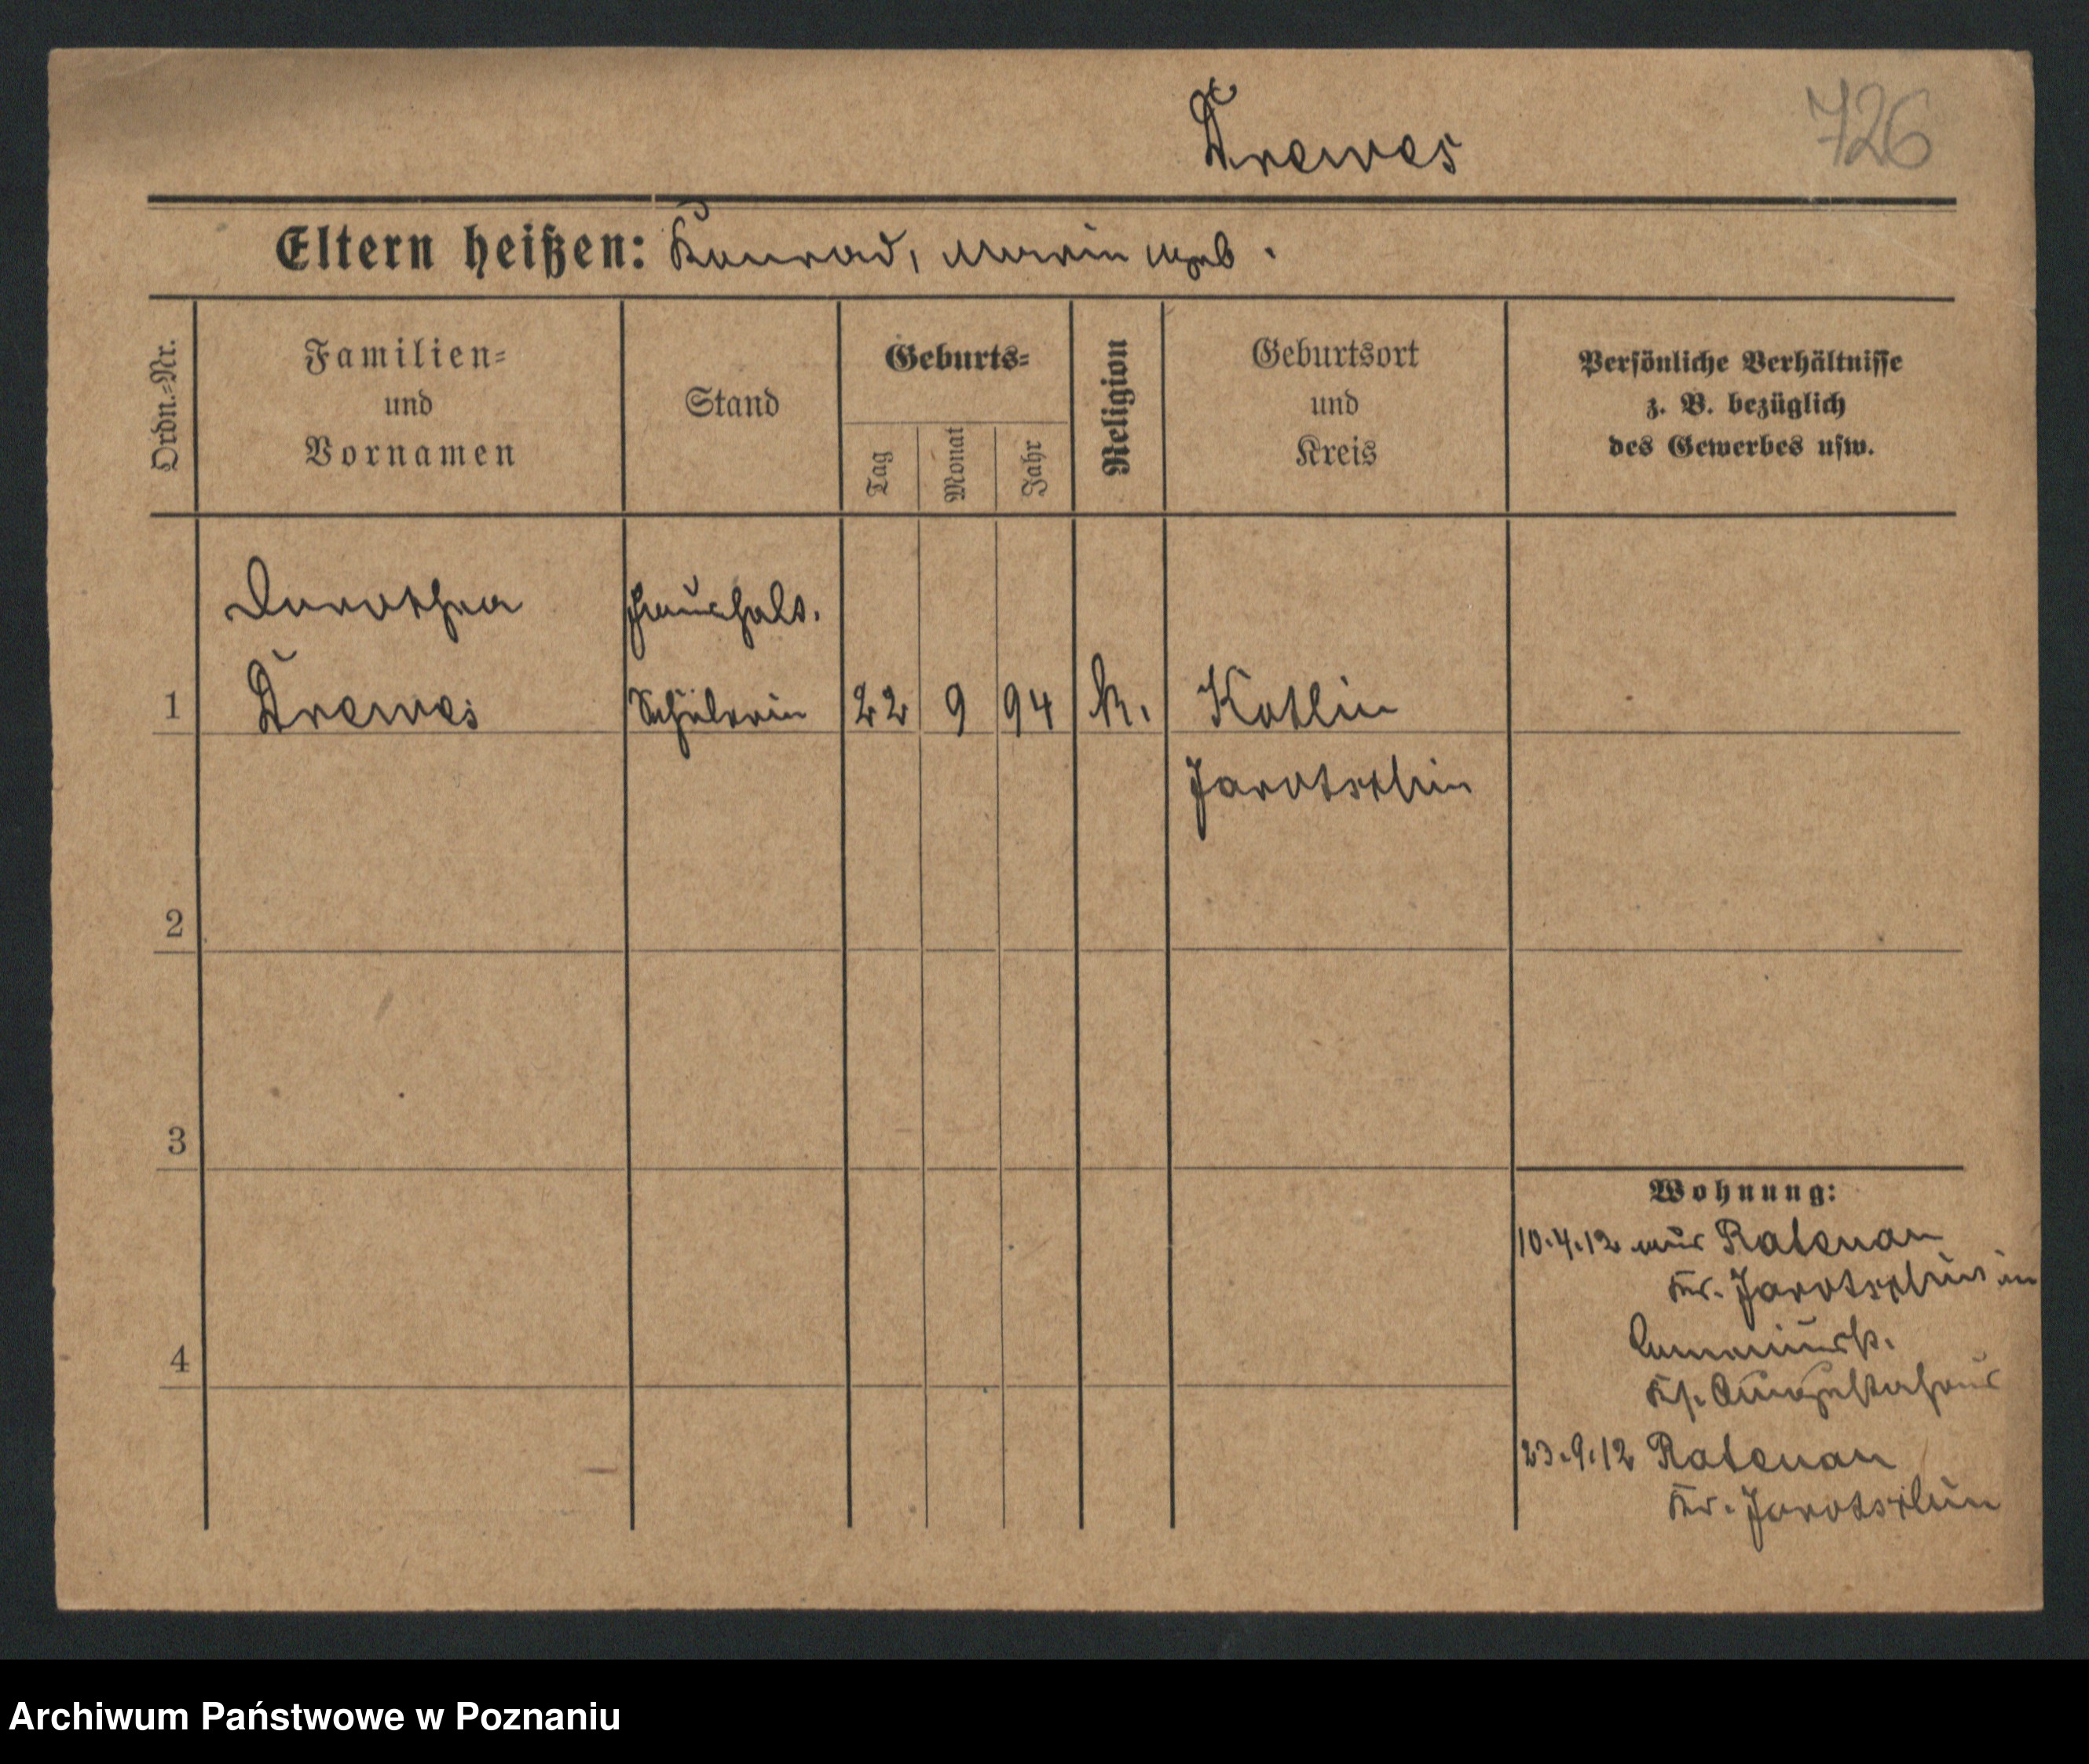 Drewes
726
Eltern heißen: Konrad, Maria geb.
Ordn.-Nr.
Familien-
und
Vornamen
Stand
Geburts-
Tag
Monat
Jahr
Religion
Geburtsort
und
Kreis
Persönliche Verhältnisse
z. B. bezüglich
des Gewerbes usw.
Dorothea Haushalt.
1 Drewes Schülerin 22 9 94 K. Kotlin
Jarotschin
2
3
Wohnung:
10.4.12 aus Ratenau
Kr. Jarotschin in
4
Ks. Augustahaus
23.9.12 Ratenau
Kr. Jarotschin
Archiwum Państwowe w Poznaniu